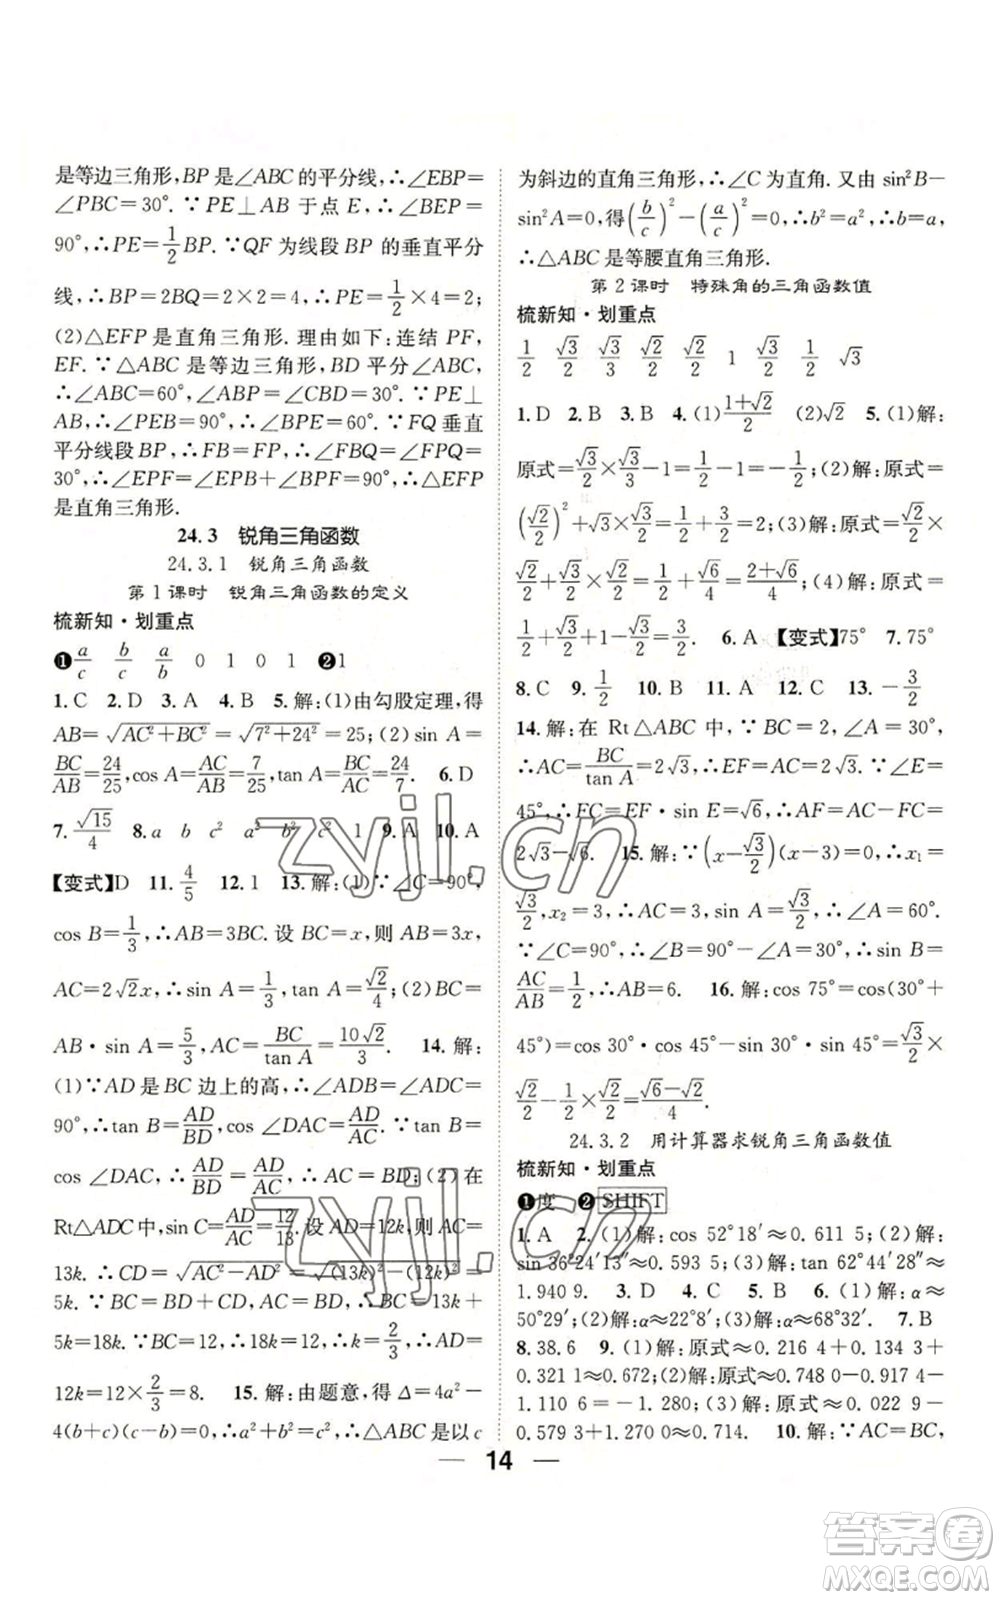 是等边三角形,BP是∠ABC的平分线,∴∠EBP=
∠PBC=30°. ∵PE⊥AB 于点 E,∴∠BEP=
90°,∴PE=1/2BP. ∵QF 为线段 BP 的垂直平分
线,∴BP=2BQ=2×2=4,∴PE=1/2×4=2;
(2)△EFP是直角三角形. 理由如下:连结 PF,
EF. ∵△ABC 是等边三角形,BD 平分∠ABC,
∴∠ABC=60°,∠ABP=∠CBD=30°. ∵PE⊥
AB,∴∠PEB=90°,∴∠BPE=60°. ∵FQ垂直
平分线段BP,∴FB=FP,∴∠FBQ=∠FPQ=
30°,∴∠EPF=∠EPB+∠BPF=90°,∴△EFP
是直角三角形.
24.3 锐角三角函数
24.3.1 锐角三角函数
第1课时 锐角三角函数的定义
梳新知·划重点
❶a/c b/c a/b 0 1 0 1 ❷1
1.C 2.D 3.A 4.B 5.解:(1)由勾股定理,得
AB=√(AC²+BC²)=√(7²+24²)=25;(2)sin A=
BC/AB=24/25,cos A=AC/AB=7/25,tan A=BC/AC=24/7. 6.D
7.√15/4 8.a b c² a² b² c² 1 9.A 10.A
【变式】D 11.4/5 12.1 13.解:(1)∵∠C=90°,
cos B=1/3,∴AB=3BC. 设 BC=x,则 AB=3x,
AC=2√2x,∴sin A=1/3,tan A=√2/4;(2)BC=
AB·sin A=5/3,AC=BC/tan A=10√2/3. 14.解:
(1)∵AD是BC边上的高,∴∠ADB=∠ADC=
90°,∴tan B=AD/BD,cos∠DAC=AD/AC. ∵tan B=
cos∠DAC,∴AD/BD=AD/AC,∴AC=BD;(2)在
Rt△ADC中,sin C=AD/AC=12/13. 设 AD=12k,则 AC=
13k. ∴CD=√(AC²−AD²)=√((13k)²−(12k)²)=
5k. ∵BC=BD+CD,AC=BD,∴BC=13k+
5k=18k. ∵BC=12,∴18k=12,∴k=2/3,∴AD=
12k=12×2/3=8. 15.解:由题意,得Δ=4a²−
4(b+c)(c−b)=0,∴a²+b²=c²,∴△ABC是以c
为斜边的直角三角形,∴∠C为直角. 又由 sin²B−
sin²A=0,得(b/c)²−(a/c)²=0,∴b²=a²,∴b=a,
∴△ABC是等腰直角三角形.
第2课时 特殊角的三角函数值
梳新知·划重点
1/2 √3/2 √3/3 √2/2 √2/2 1 √3/2 1/2 √3
1.D 2.B 3.B 4.(1)(1+√2)/2 (2)√2 5.(1)解:
原式=√3/2×√3/3−1=1/2−1=−1/2;(2)解:原式=
(√2/2)²+√3×√3/2=1/2+3/2=2;(3)解:原式=√2/2×
√2/2+√2/2×√3/2=1/2+√6/4=(2+√6)/4;(4)解:原式=
1/2+√3/2×√3/3+1/2=3/2. 6.A 【变式】75° 7.75°
8.C 9.1/2 10.B 11.A 12.C 13.−3/2
14.解:在 Rt△ABC 中,∵BC=2,∠A=30°,
∴AC=BC/tan A=2√3,∴EF=AC=2√3. ∵∠E=
45°,∴FC=EF·sin E=√6,∴AF=AC−FC=
2√3−√6. 15.解:∵(x−√3/2)(x−3)=0,∴x₁=
√3/2,x₂=3,∴AC=3,sin A=√3/2,∴∠A=60°.
∵∠C=90°,∴∠B=90°−∠A=30°,∴sin B=
AC/AB=1/2,∴AB=6. 16.解:cos 75°=cos(30°+
45°)=cos 30°·cos 45°−sin 30°·sin 45°=√3/2×
√2/2−1/2×√2/2=(√6−√2)/4.
24.3.2 用计算器求锐角三角函数值
梳新知·划重点
❶度 ❷SHIFT
1.A 2.(1)解:cos 52°18′≈0.611 5;(2)解:
sin 36°24′13″≈0.593 5;(3)解:tan 62°44′28″≈
1.940 9. 3.D 4.C 5.B 6.(1)解:α≈
50°29′;(2)解:α≈6°8′;(3)解:α≈68°32′. 7.B
8.38.6 9.(1)解:原式≈0.216 4+0.113 9≈
0.330 3;(2)解:原式≈0.748 0−0.917 4−
1.110 6=−1.280;(3)解:原式≈0.022 9−
0.579 3+1.270 0≈0.714. 10.解:∵AC=BC,
14
zyjl.cn
zyjl.cn
答案圈
MXQE.COM